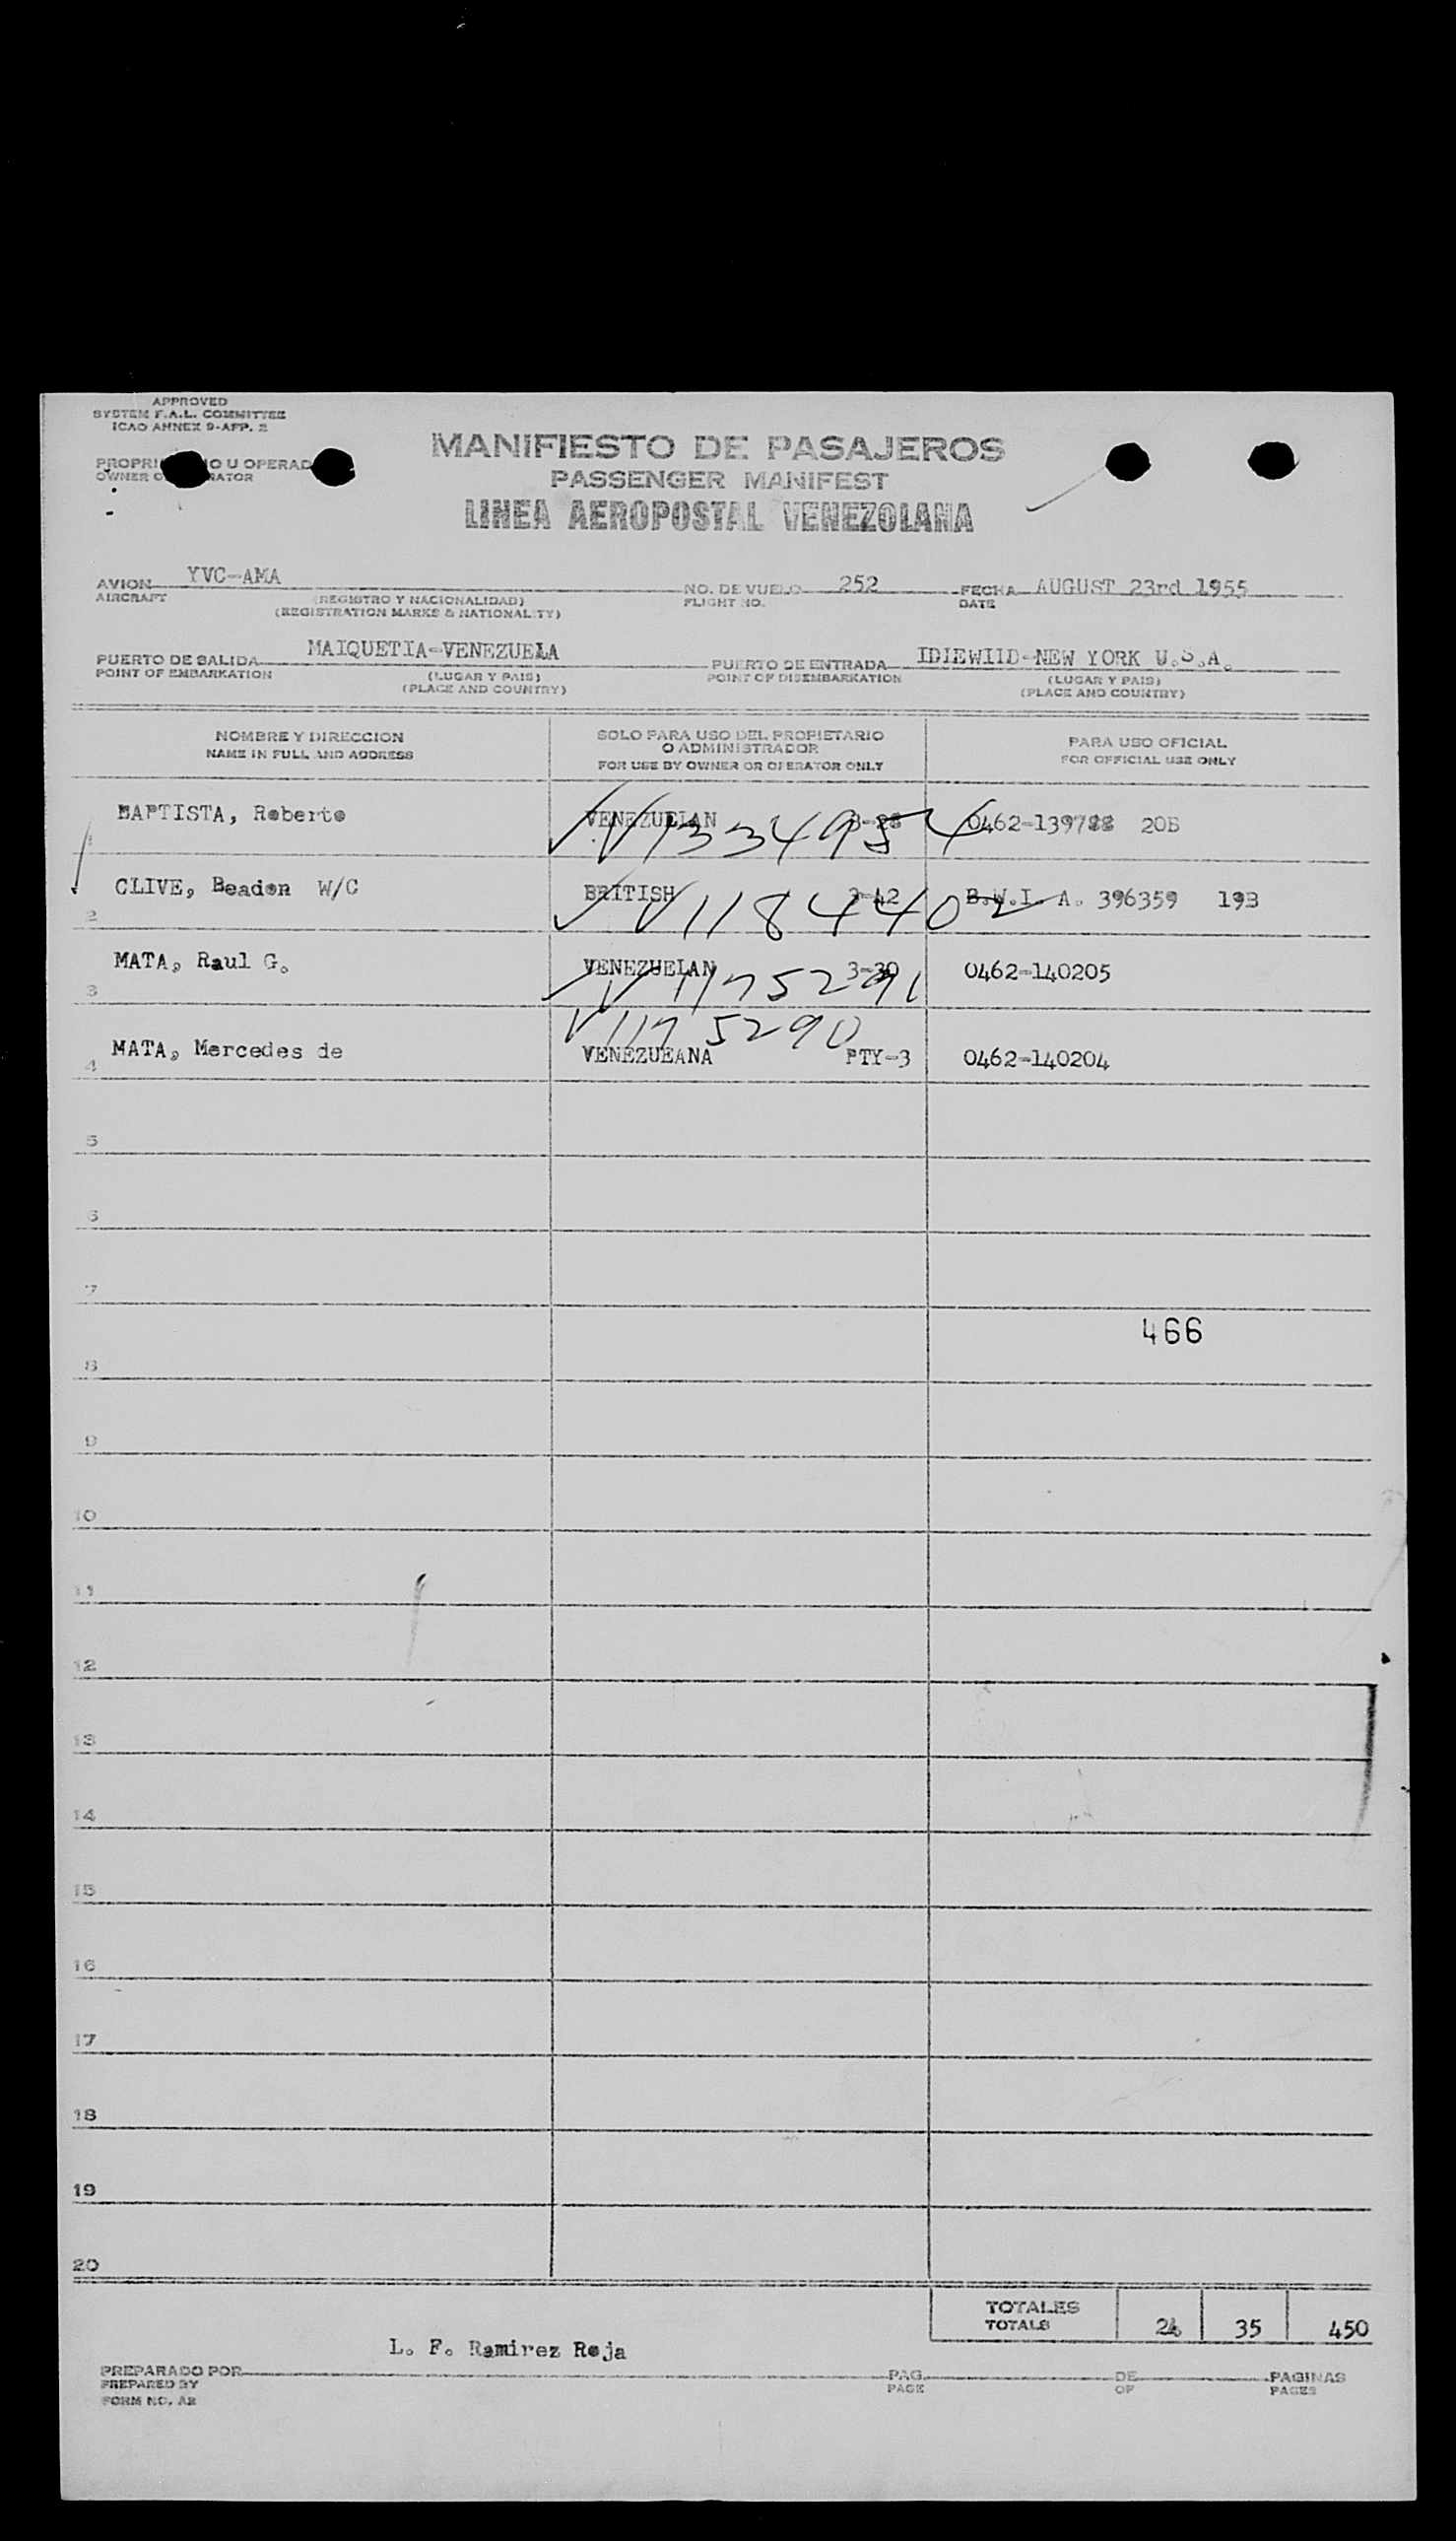 APPROVED
SYSTEM F.A.L. COMMITTEE
ICAO ANNEX 9-APP. 2
MANIFIESTO DE PASAJEROS
PASSENGER MANIFEST
LINEA AEROPOSTAL VENEZOLANA
PROPRI IO U OPERAD
OWNER O RATOR
AVION YVC-AMA NO. DE VUELO 252 FECHA AUGUST 23rd 1955
AIRCRAFT (REGISTRO Y NACIONALIDAD) FLIGHT NO. DATE
(REGISTRATION MARKS & NATIONALITY)
PUERTO DE SALIDA MAIQUETIA-VENEZUELA PUERTO DE ENTRADA IDIEWIID-NEW YORK U.S.A.
POINT OF EMBARKATION (LUGAR Y PAIS) POINT OF DISEMBARKATION (LUGAR Y PAIS)
(PLACE AND COUNTRY) (PLACE AND COUNTRY)
NOMBRE Y DIRECCION SOLO PARA USO DEL PROPIETARIO O ADMINISTRADOR PARA USO OFICIAL
NAME IN FULL AND ADDRESS FOR USE BY OWNER OR OPERATOR ONLY FOR OFFICIAL USE ONLY
1 BAPTISTA, Roberto VENEZUELAN 3-28 0462-139788 20B
V1334954
2 CLIVE, Beadon W/C BRITISH 3-42 B.W.I. A. 396359 19B
V1184402
3 MATA, Raul G. VENEZUELAN 3-30 0462-140205
V1175291
V1175290
4 MATA, Mercedes de VENEZUEANA PTY-3 0462-140204
5
6
7
466
8
9
10
11
12
13
14
15
16
17
18
19
20
TOTALES
TOTALS 35 450
L. F. Ramirez Roja
PREPARADO POR PAG. DE PAGINAS
PREPARED BY PAGE OF PAGES
FORM NO. A2